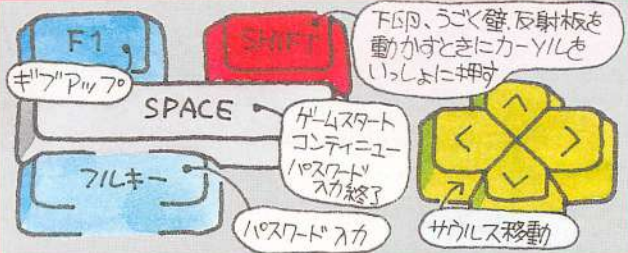 F1
ギブアップ
SHIFT
、うごく壁、反射板を
動かすときにカーソルを
いっしょに押す
SPACE
ゲームスタート
コンティニュー
パスワード
入力終了
フルキー
パスワード入力
サウルス移動